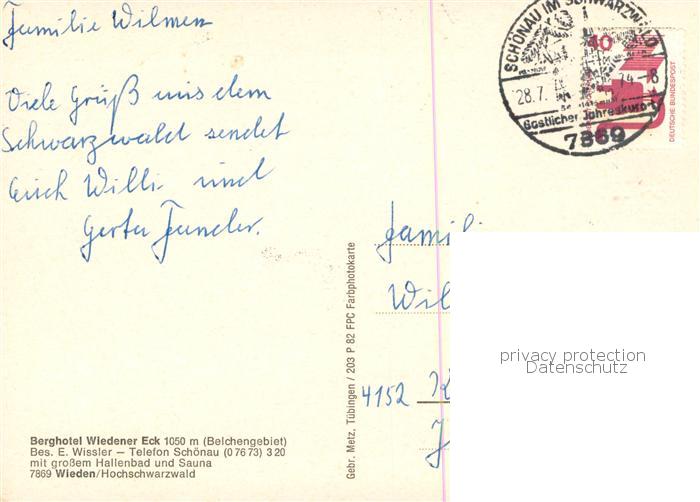 Familie Wilmen
Viele Grüß aus dem
Schwarzwald sendet
Euch Willi und
Gerta
SCHÖNAU IM SCHWARZWALD
28.7. 74-18
Gastlicher Jahreskurort
7869
40
DEUTSCHE BUNDESPOST
Famili
Wil
4152 K
privacy protection
Datenschutz
Gebr. Metz, Tübingen / 203 P 82 FPC Farbphotokarte
Berghotel Wiedener Eck 1050 m (Belchengebiet)
Bes. E. Wissler — Telefon Schönau (0 76 73) 3 20
mit großem Hallenbad und Sauna
7869 Wieden/Hochschwarzwald